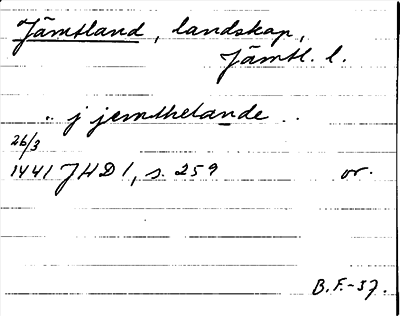 Jämtland, landskap,
Jämtl. l.
.. j jemthelande ..
26/3
1441 JHD 1, s. 259 or.
B.F.-37.